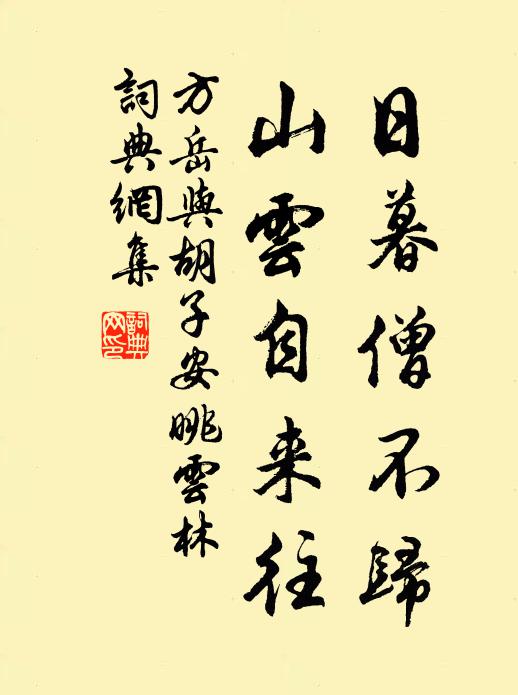 日暮僧不歸
山雲自来往
方岳與胡子安眺雲林
詞典網集
詞典
网印